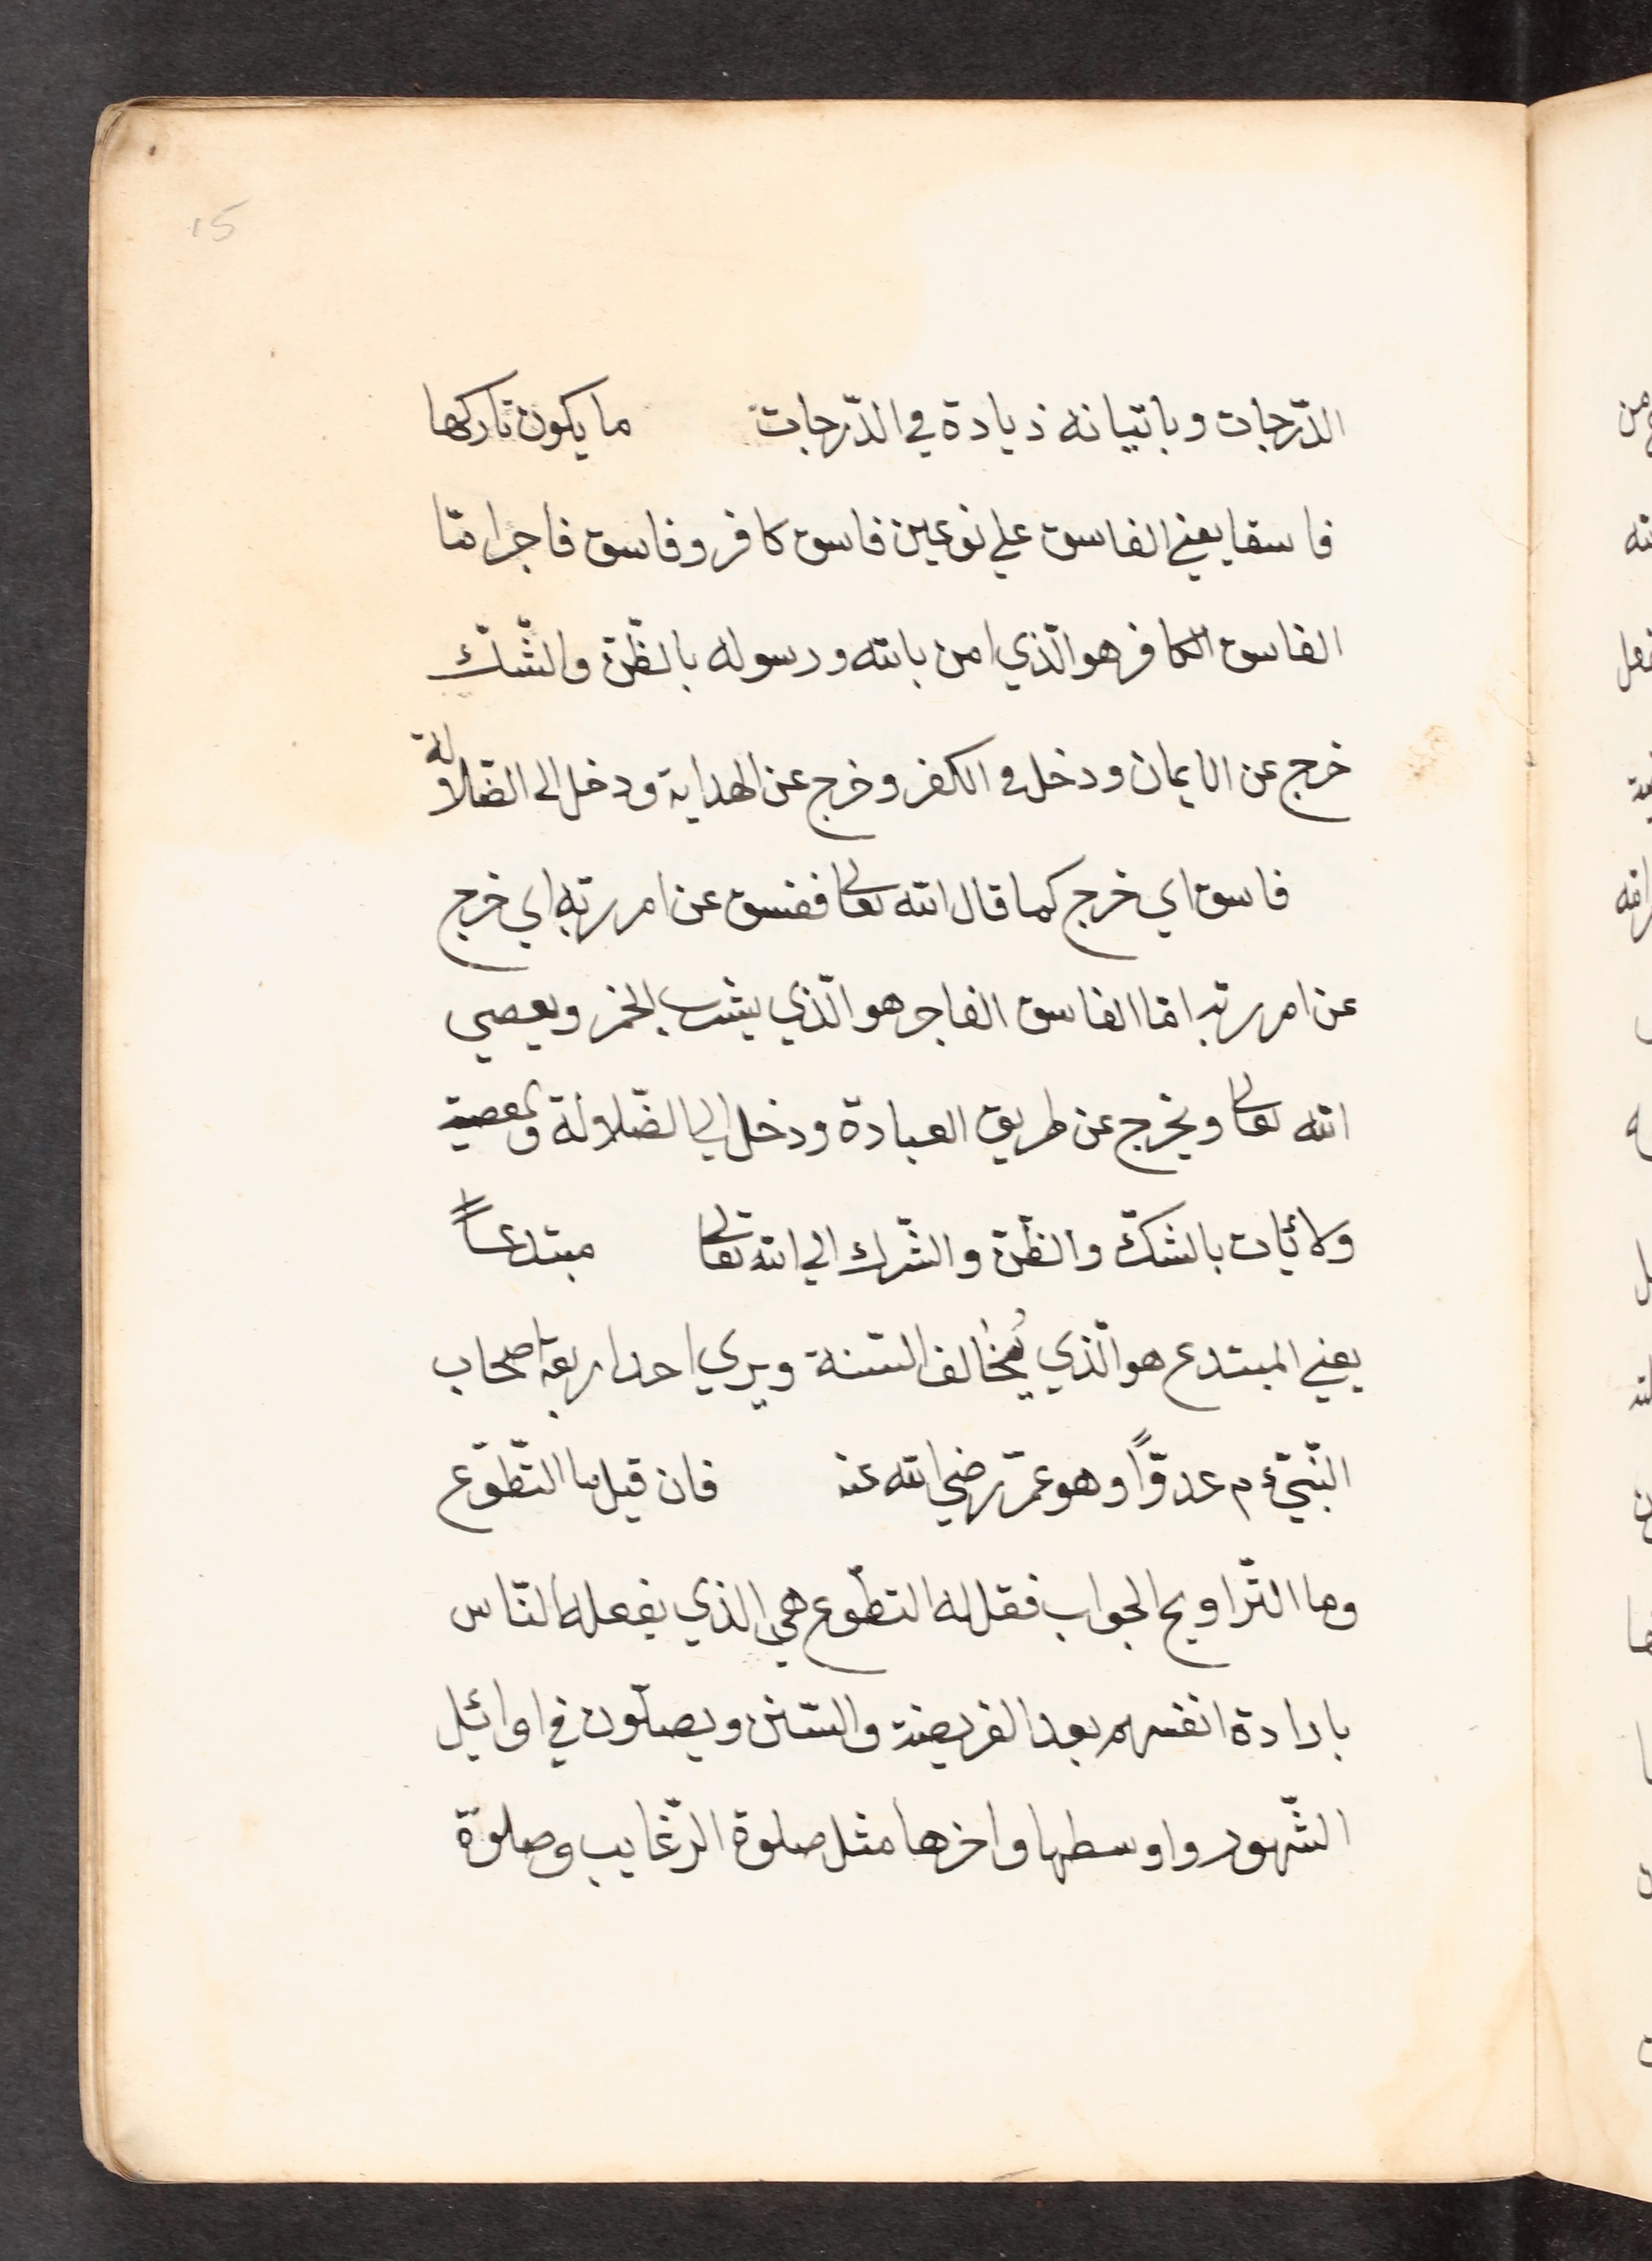 15
الدّرجات وباتيانه زيادة في الدّرجات ما يكون تاركها
فاسقا يعني الفاسق علي نوعين فاسق كافر وفاسق فاجر امّا
الفاسق الكافر هو الّذي امن بالله ورسوله بالظّن والشّكّ
خرج عن الايمان ودخل في الكفر وخرج عن الهداية ودخل الى الضّلالة
فاسق اي خرج كما قال الله تعالى ففسق عن امر ربّه اي خرج
عن امر ربه امّا الفاسق الفاجر هو الّذي يشرب الخمر ويعصي
الله تعالى ويخرج عن طريق العبادة ودخل الي الضّلالة والمعصية
ولا يأت بالشّكّ والظّن والشّرك الي الله تعالى مبتدعاً
يعني المبتدع هو الّذي يُخالف السّنة ويري احد اربعة اصحاب
النّبيّ ءم عدوّاً وهو عمر رضي الله عنه فان قيل ما التّطوّع
وما التّراويح الجواب فقل له التطوّع هي الذي يفعله النّاس
بارادة انفسهم بعد الفريضة والسّنن ويصلّون في اوائل
الشّهور واوسطها واخرها مثل صلوة الرّغايب وصلوة